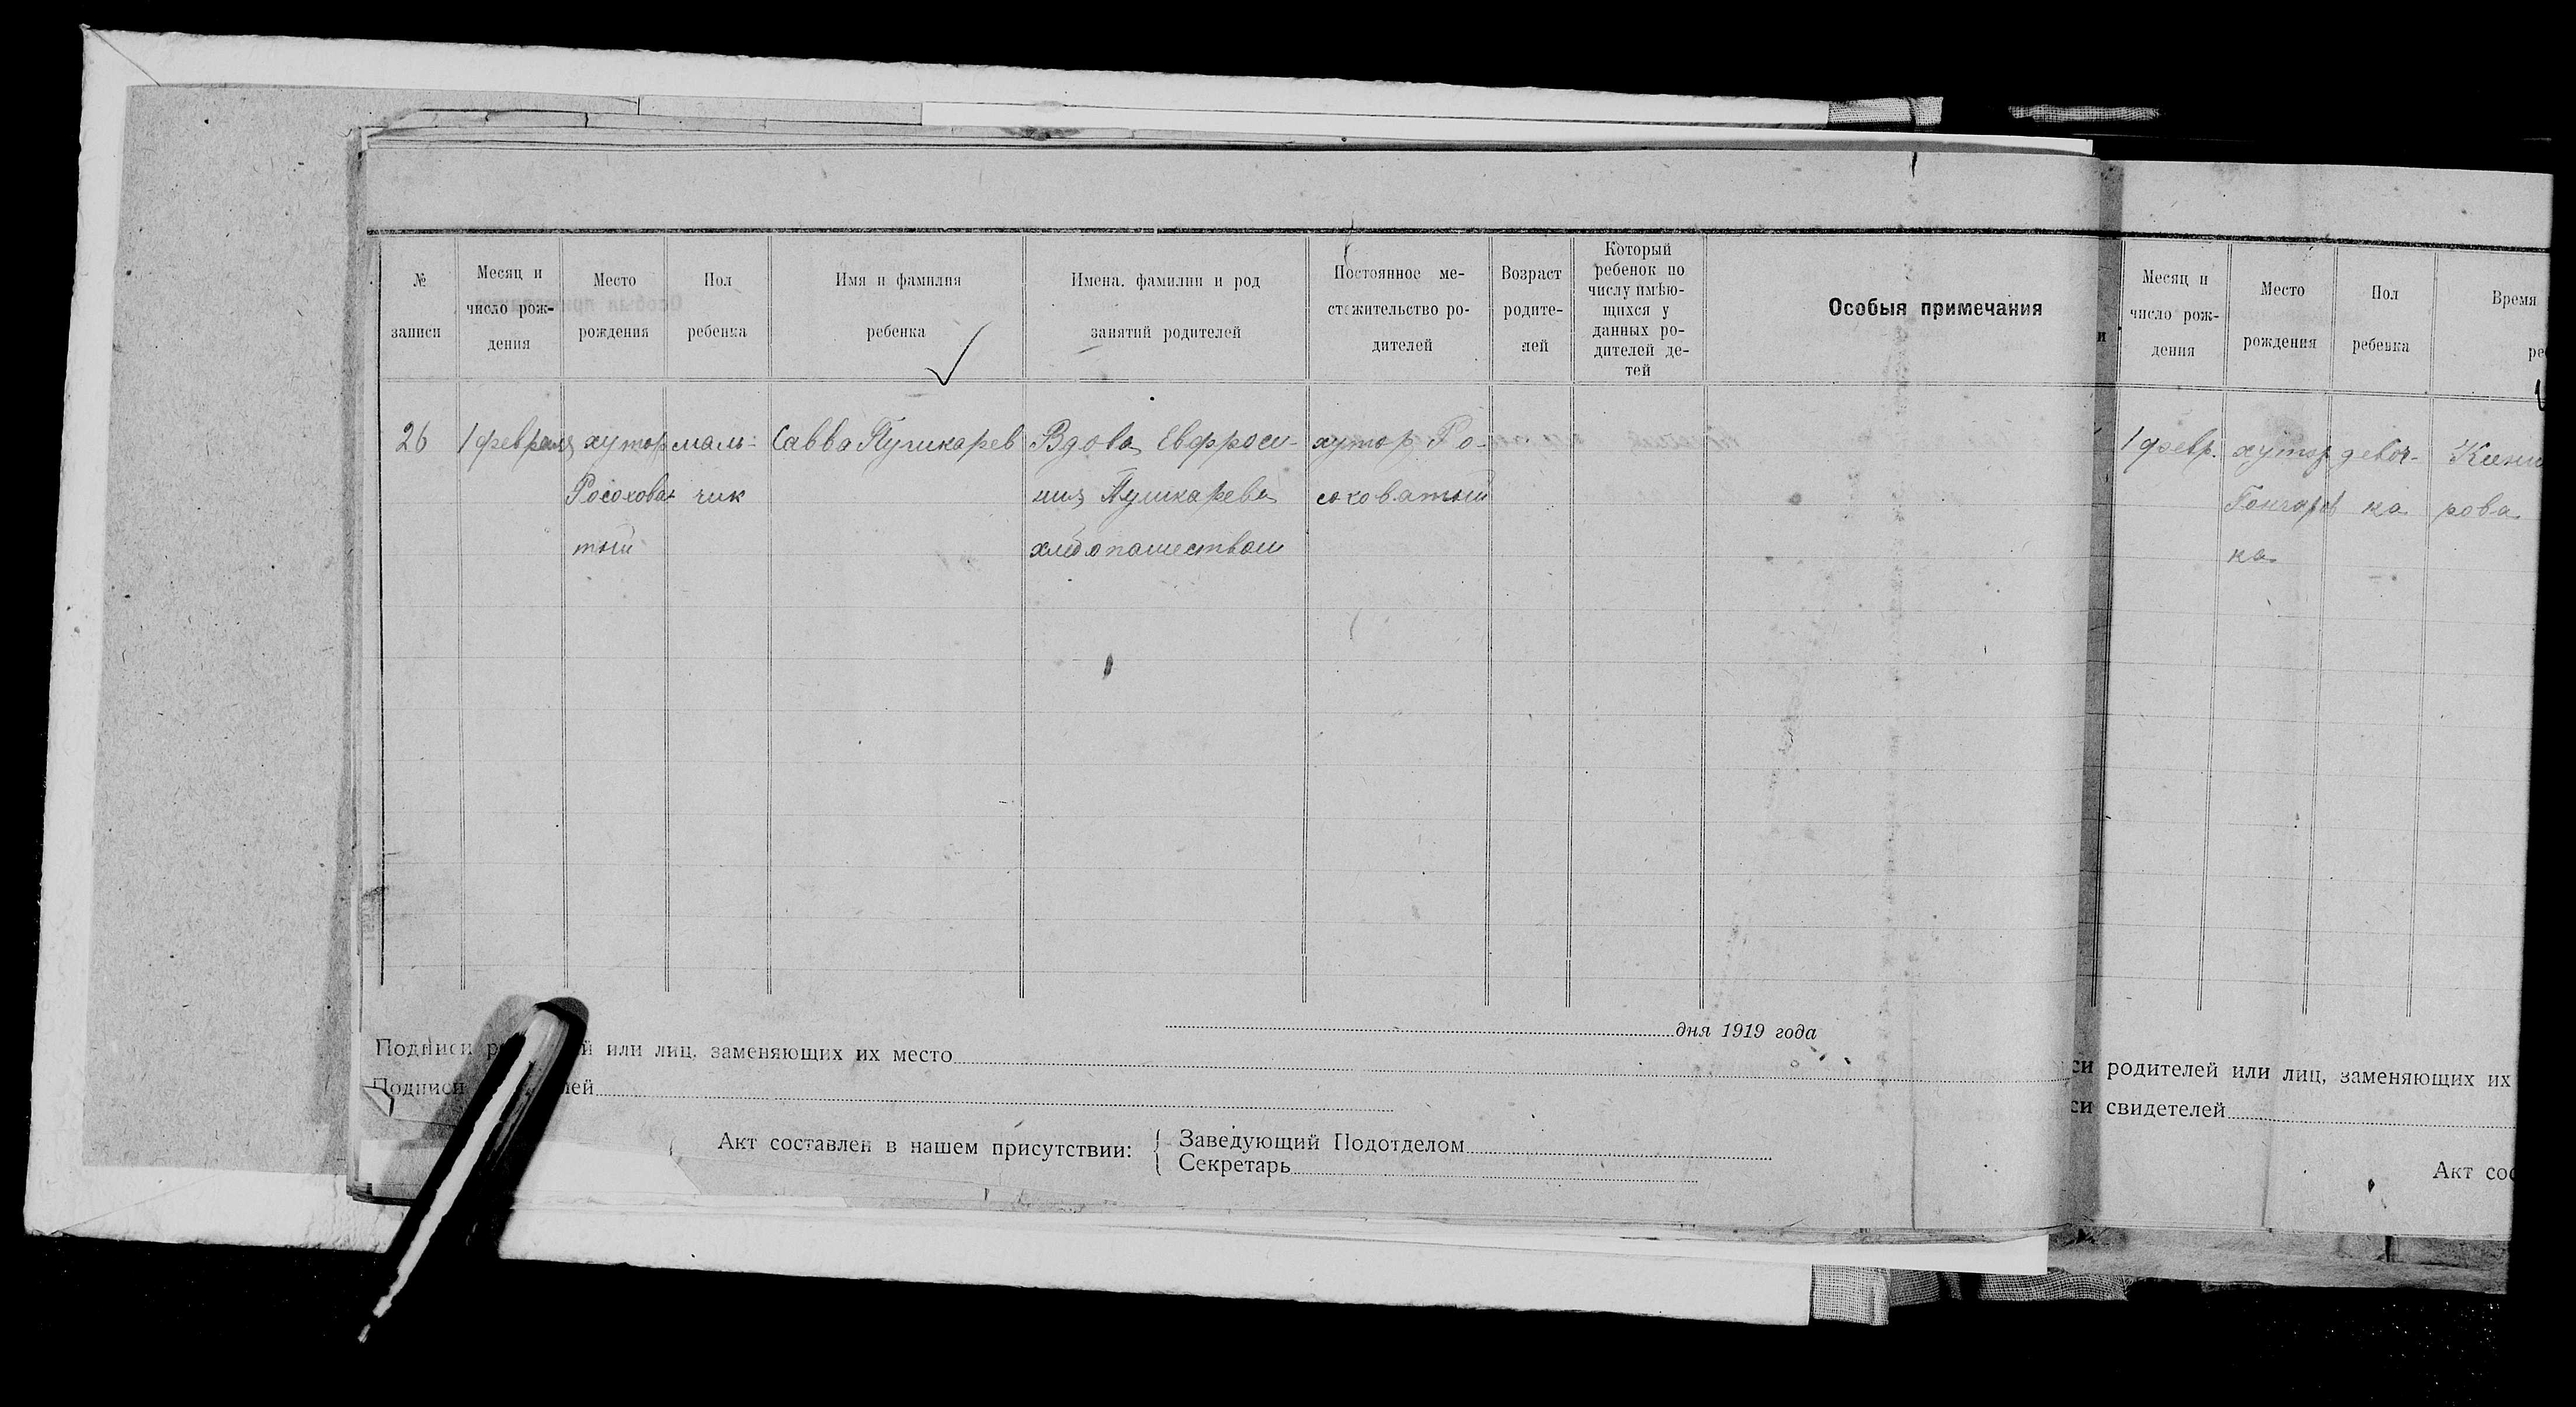 № записи
Месяц и число рож-
дения
Место рождения
Пол ребенка
Имя и фамилия ребенка
Имена, фамилии и род занятий родителей
Постоянное ме-
стожительство ро-
дителей
Возраст
родите-
лей
Который
ребенок по
числу имѣю-
щихся у
данных ро-
дителей де-
тей
Особыя примечания
26
1 февраля
хутор
Росохова
тый
маль-
чик
Савва Пушкарев
Вдова Евфроси-
ния Пушкарева
хлебопашеством
хутор Ро-
соховатый
дня 1919 года
Подписи или лиц, заменяющих их место
Подписи
Акт составлен в нашем присутствии:
Заведующий Подотделом
Секретарь
и
Месяц и
число рож-
дения
Место
рождения
Пол
ребенка
Время
ре
1 февр.
хутор
Гончаров
ка
девоч-
ка
рова
си родителей или лиц, заменяющих их
си свидетелей
Акт сос